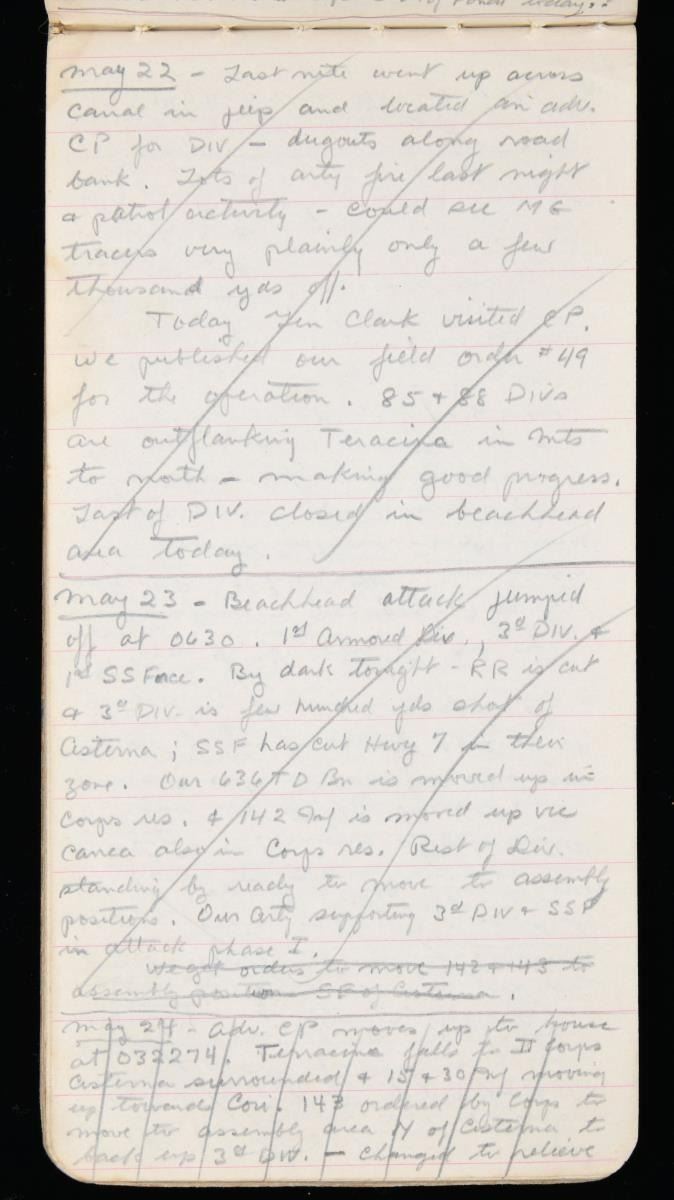 today.
May 22 - Last nite went up across
canal in jeep and located an adv.
CP for DIV - dugouts along road
bank. Lots of arty fire last night
& patrol activity - could see MG
tracers very plainly only a few
thousand yds off.
Today Gen Clark visited CP.
We published our field order #49
for the operation. 85 & 88 Divs
are outflanking Teracina in Mts
to north - making good progress.
Last of DIV. closed in beachhead
area today.
May 23 - Beachhead attack jumped
off at 0630. 1st Armored Div., 3d DIV. &
1st SS Force. By dark tonight - RR is cut
& 3d DIV. is few hundred yds short of
Cisterna; SSF has cut Hwy 7 in their
zone. Our 636 TD Bn is moved up in
corps res. & 142 Inf is moved up vic
canea also in Corps res. Rest of Div.
standing by ready to move to assembly
positions. Our Arty supporting 3d DIV & SSF
in attack phase I.
We get orders to move 142 & 143 to
assembly position SE of Cisterna.
May 24 - Adv. CP moves up to house
at 032274. Terracina falls to II Corps
Cisterna surrounded & 15 & 30 Inf moving
up towards Cori. 143 ordered by Corps to
move to assembly area of Cisterna to
back up 3d DIV. - changed to relieve